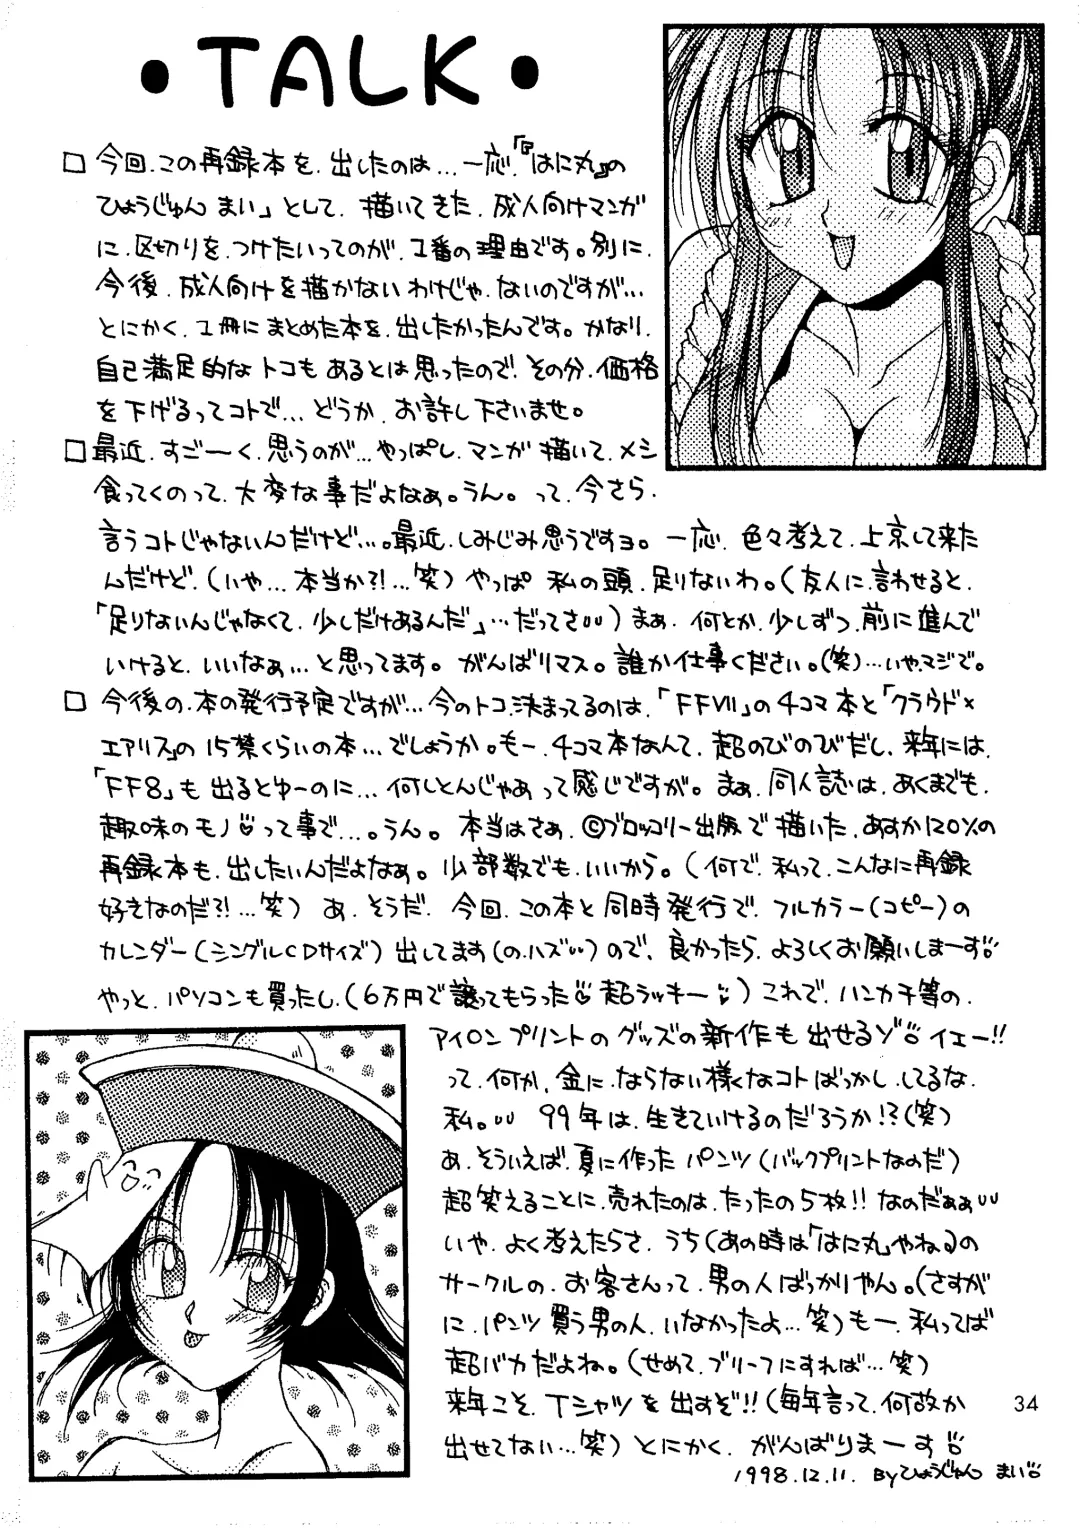 •TALK•
□ 今回、この再録本を、出したのは…一応「『はに丸』の
ひょうじゅん まい」として、描いてきた、成人向けマンガ
に、区切りを、つけたいってのが、1番の理由です。別に、
今後、成人向けを描かないわけじゃ、ないのですが…
とにかく、1冊にまとめた本を、出したかったんです。かなり、
自己満足的なトコもあるとは思ったので、その分、価格
を下げるってコトで…どうか、お許し下さいませ。
□ 最近、すご〜く、思うのが…やっぱし、マンガ描いて、メシ
食ってくのって、大変な事だよなぁ。うん。って、今さら、
言うコトじゃないんだけど…。最近、しみじみ思うですヨ。一応、色々考えて、上京して来た
んだけど、(いや…本当か?!…笑)やっぱ私の頭、足りないわ。(友人に、言わせると、
「足りないんじゃなくて、少しだけあるんだ」…だってさ)まぁ、何とか、少しずつ、前に進んで
いけると、いいなぁ…と思ってます。がんばリマス。誰か仕事ください。(笑)…いや、マジで。
□ 今後の、本の発行予定ですが…今のトコ、決まってるのは、「FFVII」の4コマ本と「クラウド×
エアリス」の15禁くらいの本…でしょうか。もー、4コマ本なんて、超のびのびだし、来年には、
「FF8」も出るとゆーのに…何しとんじゃあって感じですが。まぁ、同人誌は、あくまでも、
趣味のモノって事で…。うん。本当はさぁ、©ブロッコリー出版で描いた、あすか120%の
再録本も、出したいんだよなぁ。少部数でも、いいから。(何で、私って、こんなに再録
好きなのだ?!…笑)あ、そうだ、今回、この本と同時発行で、フルカラー(コピー)の
カレンダー(シングルCDサイズ)出してます(の、ハズ)ので、良かったら、よろしくお願いしまーす
やっと、パソコンも買ったし、(6万円で譲ってもらった超ラッキー)これで、ハンカチ等の、
アイロンプリントのグッズの新作も出せるゾ イエー!!
って、何か、金に、ならない様なコトばっかし、してるな、
私。99年は、生きていけるのだろうか!?(笑)
あ、そういえば、夏に作ったパンツ(バックプリントなのだ)
超笑えることに、売れたのは、たったの5枚!!なのだぁぁ
いや、よく考えたらさ、うち(あの時は「はに丸やねる)の
サークルの、お客さんって、男の人ばっかりやん。(さすが
に、パンツ買う男の人、いなかったよ…笑)もー、私ってば
超バカだよね。(せめて、ブリーフにすれば…笑)
来年こそ、Tシャツを出すぞ!!(毎年言って、何故か
出せてない…笑)とにかく、がんばりまーす
1998.12.11. Byひょうじゅん まい
34